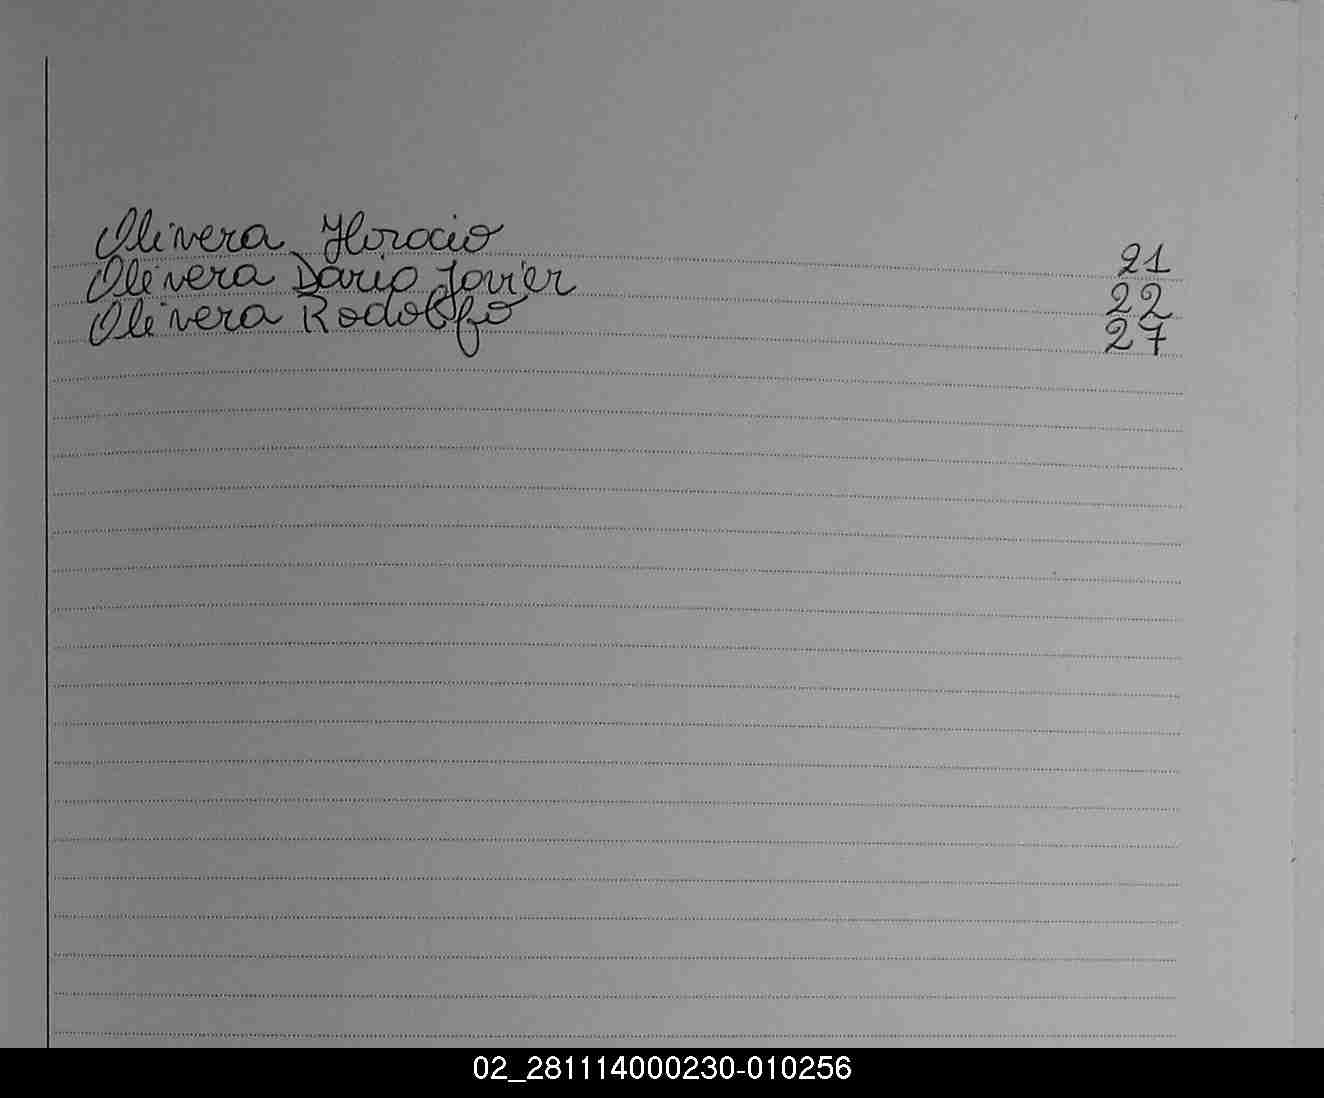 Olivera Horacio 21
Olivera Dario Javier 22
Olivera Rodolfo 27
02_281114000230-010256